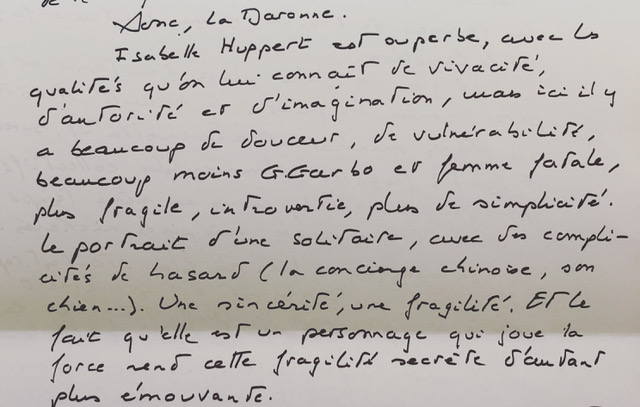 Donc, la Daronne.
Isabelle Huppert est superbe, avec les
qualités qu'on lui connaît de vivacité,
d'autorité et d'imagination, mais ici il y
a beaucoup de douceur, de vulnérabilité,
beaucoup moins G.Garbo et femme fatale,
plus fragile, introvertie, plus de simplicité.
Le portrait d'une solitaire, avec des compli-
cités de hasard (la concierge chinoise, son
chien...). Une sincérité, une fragilité. Et le
fait qu'elle est un personnage qui joue la
force rend cette fragilité secrète d'autant
plus émouvante.